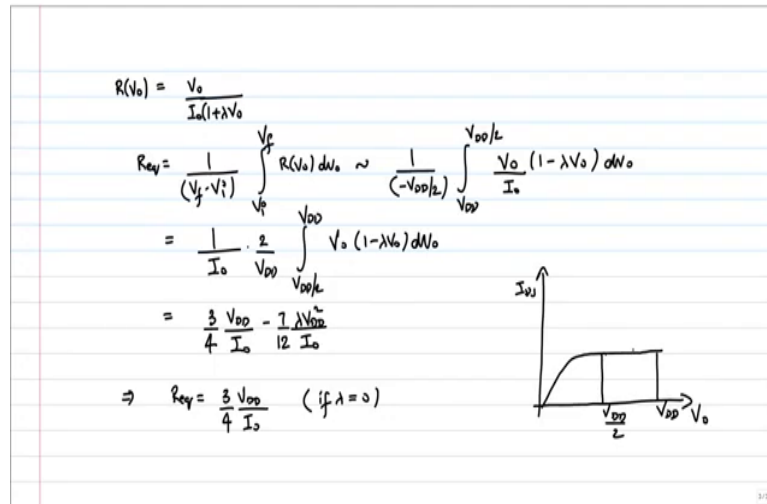 R(V₀) = V₀ / I₀(1+λV₀
Req = 1/(Vf-Vi) ∫_{Vi}^{Vf} R(V₀) dV₀ ~ 1/(-VDD/2) ∫_{VDD}^{VDD/2} V₀/I₀ (1-λV₀) dV₀
= 1/I₀ · 2/VDD ∫_{VDD/2}^{VDD} V₀ (1-λV₀) dV₀
= 3/4 VDD/I₀ - 7/12 λVDD²/I₀
IDS
⇒ Req = 3/4 VDD/I₀ (if λ = 0)
VDD/2 VDD V₀